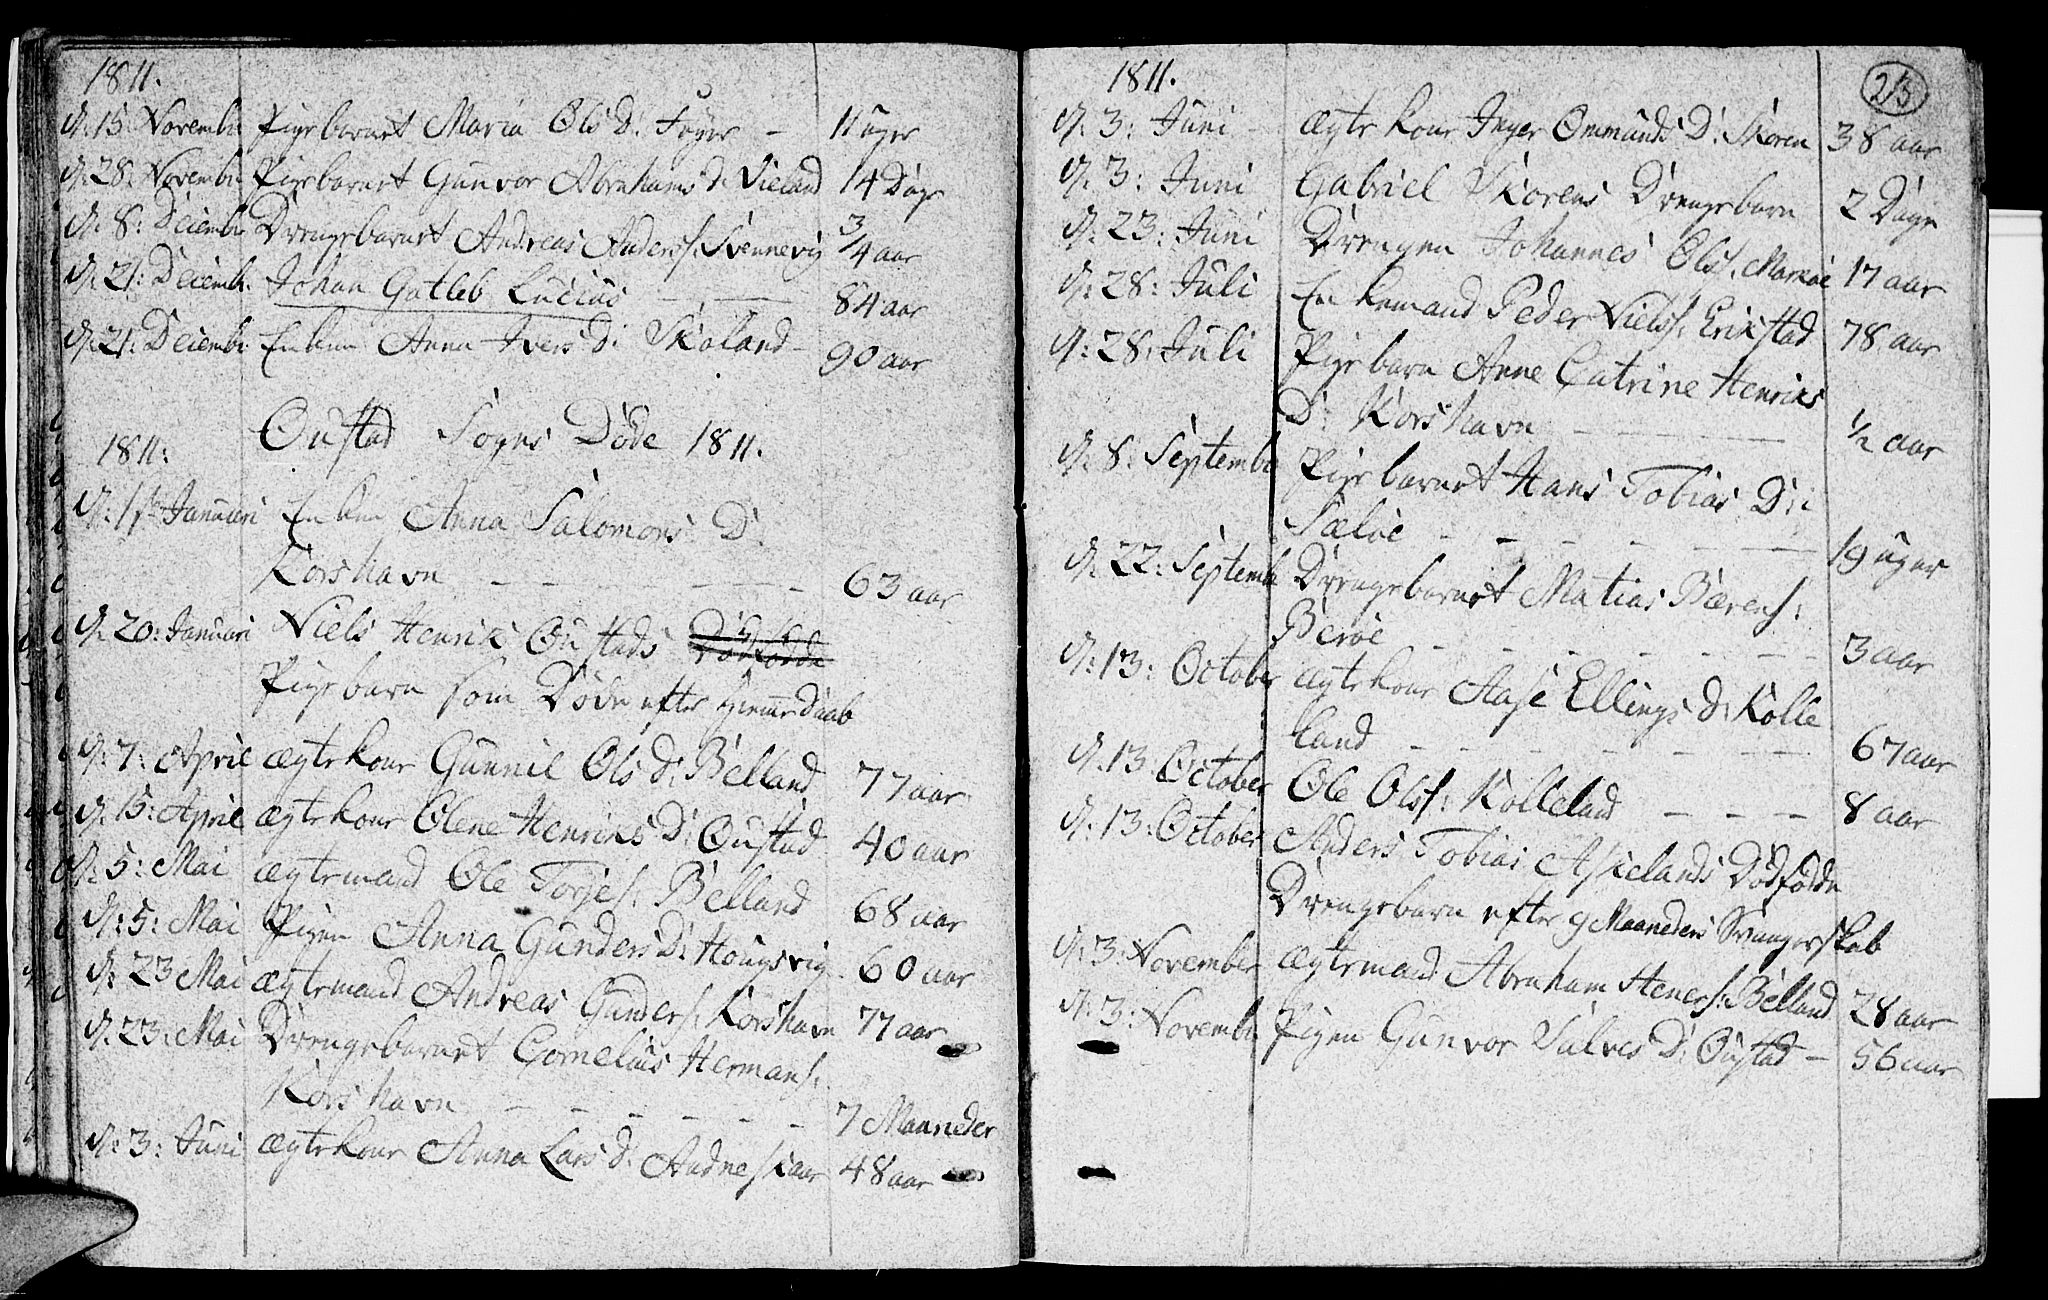 1811.
d: 15 Novembr Pigebarnet Maria Ols D: Foÿer - 11 uger
d: 28: Novembr Pigebarnet Gunvor Abrahams d: Vieland 14 Dage
d: 8: Decembr Drengebarnet Andreas Anders S: Svennevig 3/4 aar
d: 21: Decembr Johan Gotleb Lucius 84 aar
d: 21: Decembr Enken Anna Ivers D: Skoland - 90 aar
Oustad Sogns Døde 1811.
1811:
d: 1ste Januari Enken Anna Salomons D:
Korshavn 63 aar
d: 20: Januari Niels Henrik Oustads Dødfødde
Pigebarn som Døde efter Hiemme Daab
d: 7: April ægte kone Gunnil Ols D: Belland 77 aar
d: 15: April ægte kone Olene Henriks D: Oustad 40 aar
d: 5: Mai ægtemand Ole Torjes: Belland 68 aar
d: 5: Mai Pigen Anna Gunders D: Hougsvig 60 aar
d: 23 Mai ægtemand Andreas Gunders: Korshavn 77 aar
d: 23: Mai Drengebarnet Cornelius Hermans:
Korshavn 7 Maaneder
d: 3: Juni ægte kone Anna Lars d: Andneskaar 48 aar
1811.
23
d: 3: Juni - ægte kone Inger Ommunds D: Skoren 38 aar
d: 3: Juni Gabriel Skorens Drengebarn 2 Dage
d: 23: Juni Drengen Johannes Ols S: Markøe 17 aar
d: 28: Juli Enkemand Peder Niels S: Erikstad 78 aar
d: 28: Juli Pige barn Anne Catrine Henriks
D: Korshavn 1/2 aar
d: 8: Septembr Pige barnet Hans Tobias D:
Sæløe 19 uger
d: 22: Septembr Drengebarnet Matias Bærens:
Berøe 3 aar
d: 13: October ægte kone Aase Ellings d: Kolle
land 67 aar
d: 13 October Ole Ols S: Kolleland 8 aar
d: 13: October Anders Tobias Askelands Dødfødde
Drengebarn efter 9 Maaneders Svangerskab
d: 3: November ægtemand Abraham Heners: Belland 28 aar
d: 3: Novembr Pigen Gunvor Salves D: Oustad - 56 aar